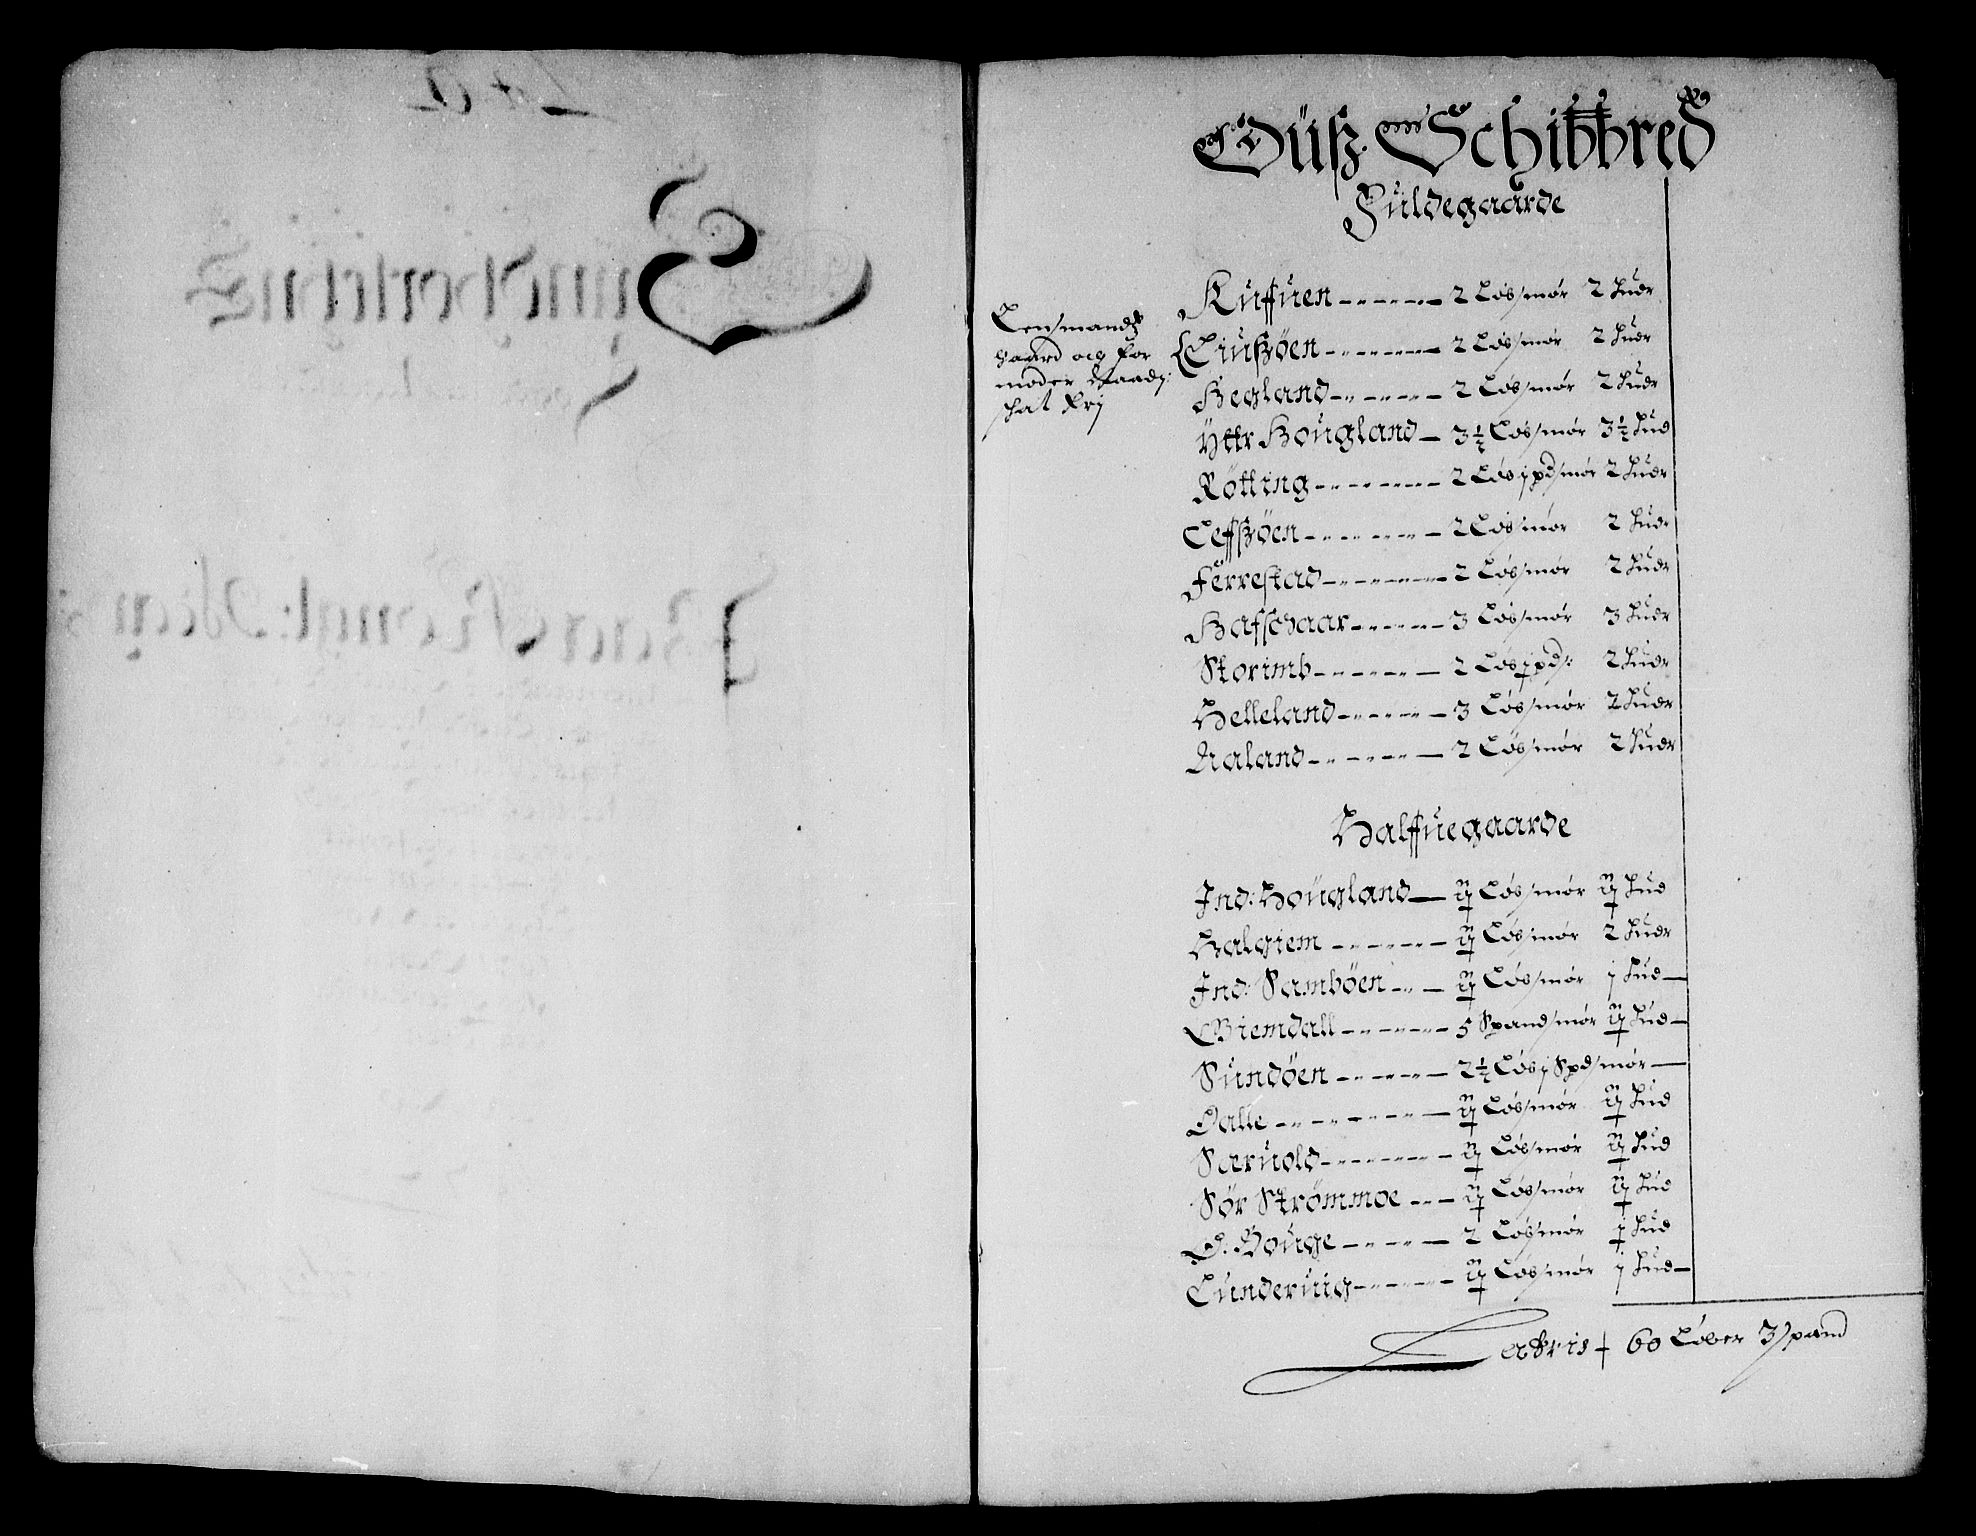 Øüß Schibbred
Fuldegaarde
Lensmandz
gaard och for
moder Maadz:
schat frij
Kuffuen 2 Løb smør 2 huder
Liußøen 2 Løb smør 2 huder
Hegland 2 Løb smør 2 huder
Ytter Hougland 3½ Løb smør 3½ hud
Rötting 2 Løb j pd smør 2 huder
Leffßøen 2 Løb smør 2 huder
Ferrestad 2 Løb smør 2 huder
Hafschaar 3 Løb smør 3 huder
Storimb 2 Løb j pd s: 2 huder
Helleland 3 Løb smør 2 huder
Aaland 2 Løb smør 2 huder
Halffuegaarde
Ind: Hougland Løb smør hud
Halgiem Løb smør 2 huder
Ind: Samböen Løb smør j hud
Giemdall 5 Spand smør hud
Sundöen 2½ Løb j Spd smør
Dalle Løb smør hud
Særuold Løb smør hud
Sör Strömmoe Løb smør hud
Ø: Bouge 2 Løb smør hud
Lunderuiig Løb smør j hud
Lateris 60 Løber 3 spand